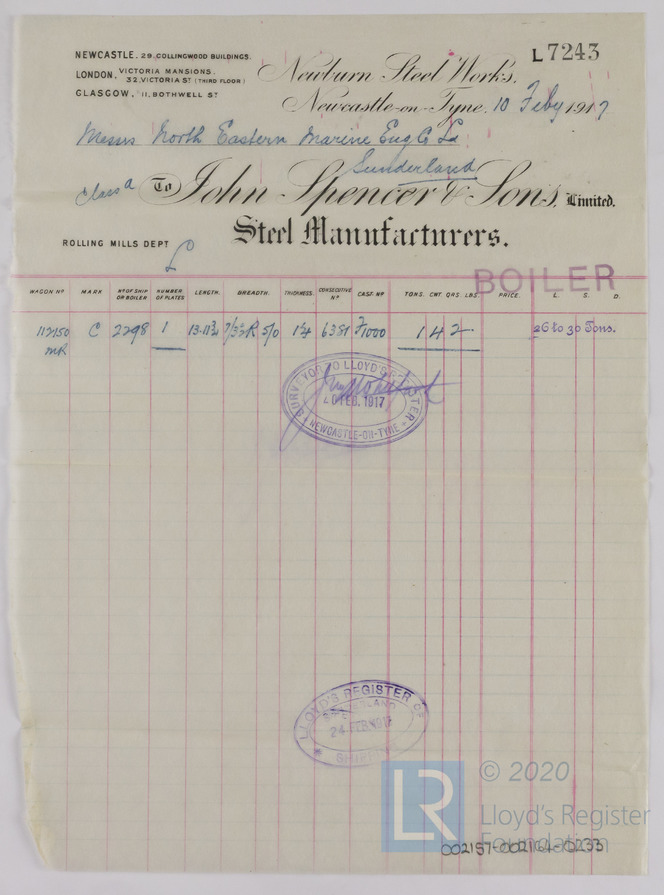 NEWCASTLE. 29. COLLINGWOOD BUILDINGS.
LONDON, VICTORIA MANSIONS.
32, VICTORIA ST (THIRD FLOOR)
GLASGOW, 11, BOTHWELL ST
L7243
Newburn Steel Works,
Newcastle-on-Tyne. 10 Feby 1917
Messrs North Eastern Marine Eng Co Ld
Sunderland
Class a To John Spencer & Sons, Limited.
Steel Manufacturers.
ROLLING MILLS DEPT
BOILER
WAGON No MARK No OF SHIP OR BOILER NUMBER OF PLATES LENGTH. BREADTH. THICKNESS. CONSECUTIVE No CAST. No TONS. CWT. QRS. LBS. PRICE. L. S. D.
112150 C 2298 1 5/0 1 1/4 6381 F1000 1 4 2 26 to 30 Tons.
MR
SURVEYOR TO LLOYD'S REGISTER
FEB. 1917
NEWCASTLE-ON-TYNE
LLOYD'S REGISTER OF
SUNDERLAND
24 FEB. 1917
SHIPPING
LR
© 2020
Lloyd's Register
Foundation
002157-002164-0233